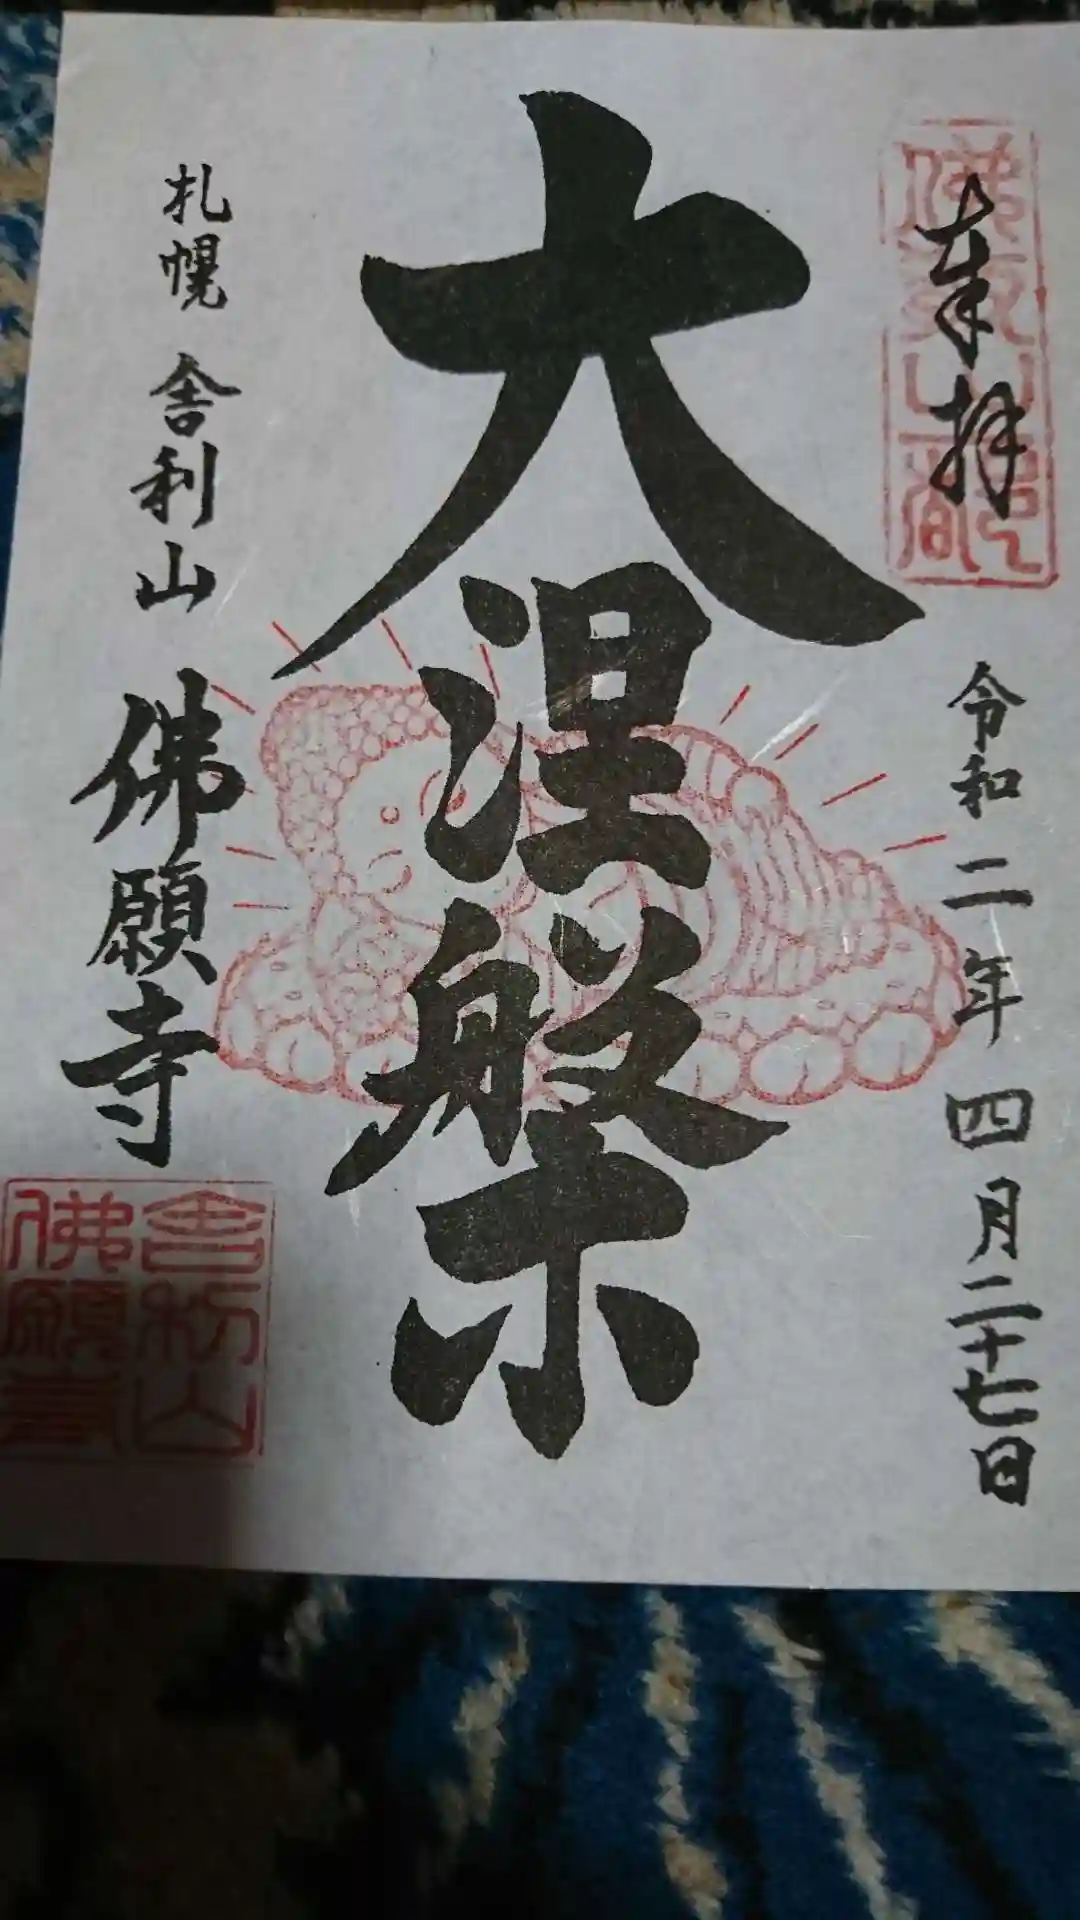 奉拝
令和二年 四月二十七日
大涅槃
札幌 舎利山 佛願寺
舎利山
佛願寺